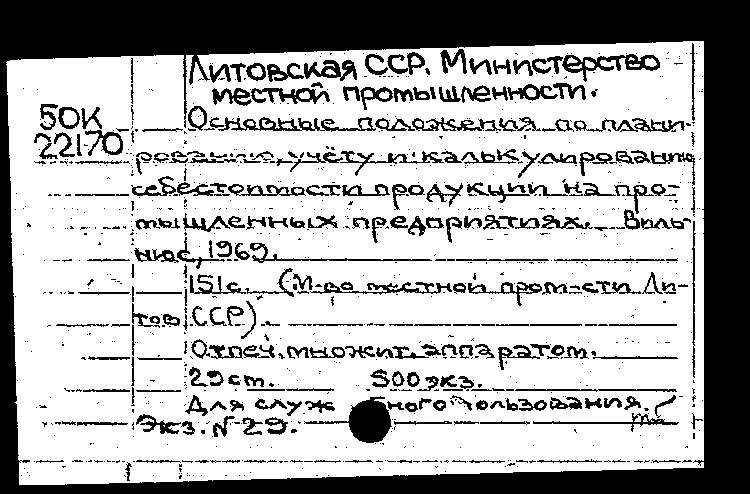 Литовская ССР. Министерство
местной промышленности.
50К
22170
Основные положения по плани-
рованию, учёту и калькулированию
себестоимости продукции на про-
мышленных предприятиях. Виль-
нюс, 1969.
151с. (М-во местной пром-сти Ли-
тов ССР).
Отпеч. множит. аппаратом.
29 ст. 500 экз.
Для служ бного пользования.
Экз. № 29.